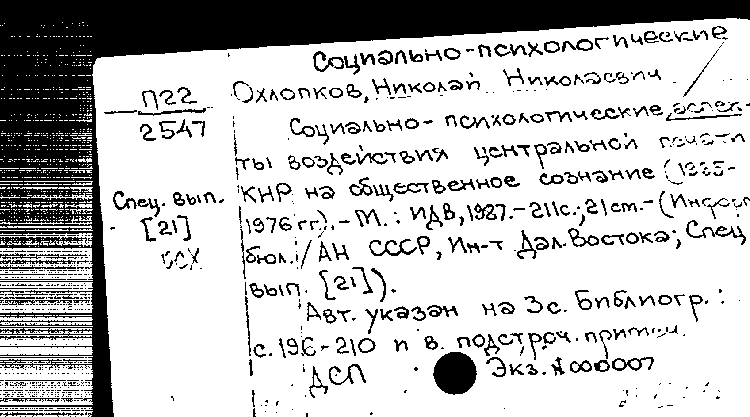 Социально-психологические
П22
2547
Охлопков, Николай Николаевич
Социально-психологические аспек-
ты воздействия центральной печати
КНР на общественное сознание (1985-
1976 гг). - М.: ИДВ, 1987. - 211с.; 21 см. - (Информ
бюл. / АН СССР, Ин-т Дал. Востока; Спец
вып. [21]).
Спец. вып.
[21]
Авт. указан на 3 с. Библиогр.:
с. 196-210 и в подстроч. примеч.
ДСП
Экз. N 000007